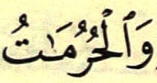 وَٱلْحُرُمَٰتُ